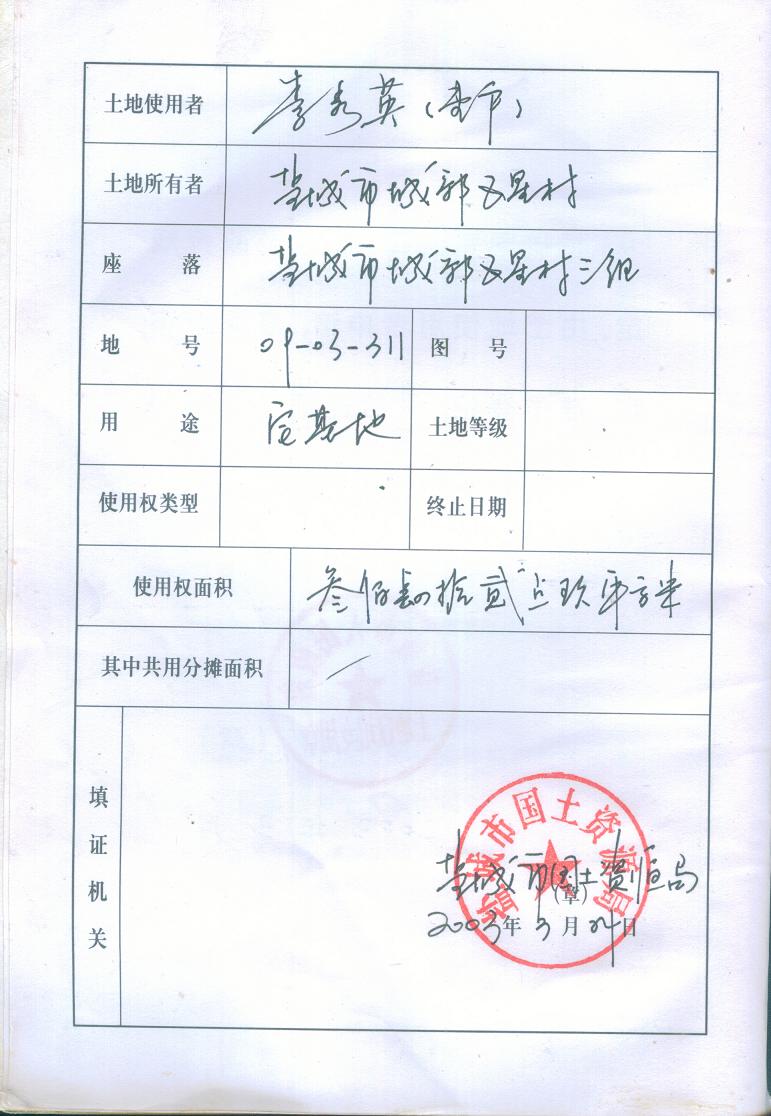 土地使用者 李秀英
土地所有者 盐城市城郊五星村
座落 盐城市城郊五星村三组
地号 09-03-311 图号
用途 宅基地 土地等级
使用权类型 终止日期
使用权面积 叁佰肆拾贰点玖平方米
其中共用分摊面积 /
填证机关
盐城市国土资源局
盐城市国土资源局
(章)
2003年3月 日